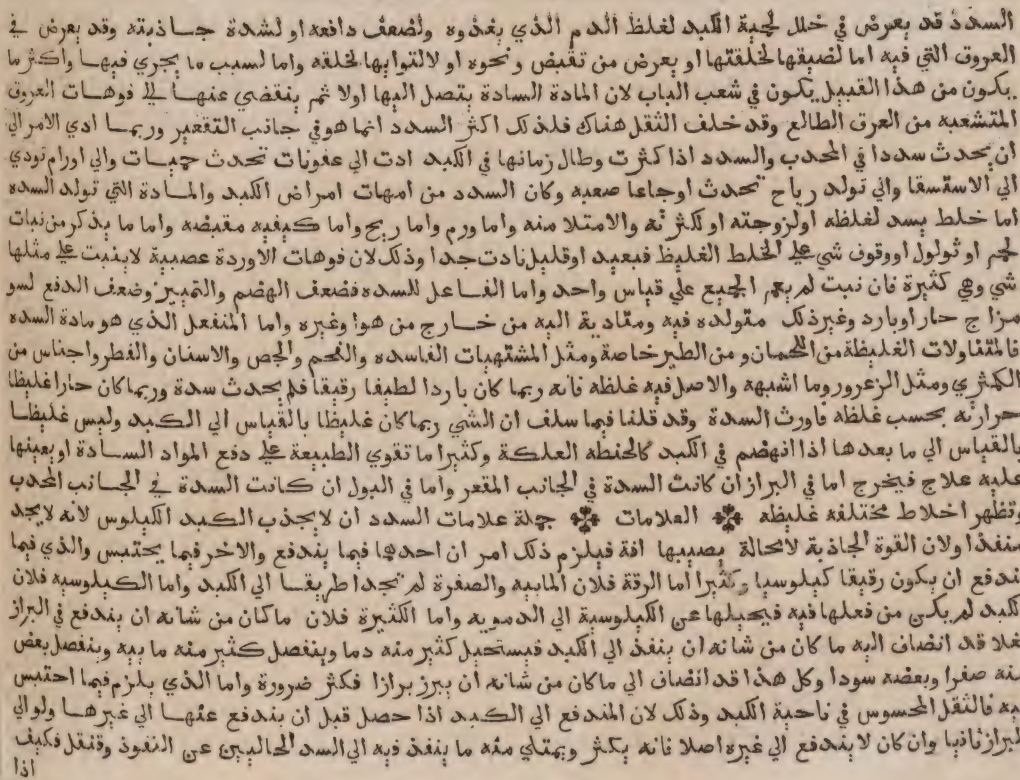 السدد قد يعرض في خلل لحمية الكبد لغلظ الدم الذي يغذوه ولضعف دافعه او لشدة جاذبته وقد يعرض في
العروق التي فيه اما لضيقها لخلقتها او يعرض من تقبض ونحوه او لالتوايها لخلقه واما لسبب ما يجري فيها واكثر ما
يكون من هذا القبيل يكون في شعب الباب لان المادة السادة يتصل اليها اولا ثم ينقضي عنها الي فوهات العروق
المتشعبه من العرق الطالع وقد خلف الثفل هناك فلذلك اكثر السدد انما هو في جانب التقعير وربما ادي الامر الي
ان يحدث سددا في المحدب والسدد اذا كثرت وطال زمانها في الكبد ادت الي عفونات تحدث حميات والي اورام تودي
الي الاستسقا والي تولد رياح تحدث اوجاعا صعبه وكان السدد من امهات امراض الكبد والمادة التي تولد السده
اما خلط يسد لغلظه او لزوجته او لكثرته والامتلا منه واما ورم واما ريح واما كيفيه مقبضه واما ما يذكر من نبات
لحم او ثولول او وقوف شي علي الخلط الغليظ فبعيد او قليل نادت جدا وذلك لان فوهات الاوردة عصبية لا ينبت علي مثلها
شي وهي كثيرة فان نبت لم يعم الجميع علي قياس واحد واما الفاعل للسده فضعف الهضم والتمييز وضعف الدفع لسو
مزاج حار او بارد وغير ذلك متولده فيه ومتادية اليه من خارج من هوا وغيره واما المنفعل الذي هو مادة السده
فالمتناولات الغليظة من اللحمان ومن الطير خاصة ومثل المشتهيات الفاسده والفحم والجص والاسنان والفطر واجناس من
الكمثري ومثل الزعرور وما اشبهه والاصل فيه غلظه فانه ربما كان باردا لطيفا رقيقا فلم يحدث سدة وربما كان حارا غليظا
حرارته بحسب غلظه فاورث السدة وقد قلنا فيما سلف ان الشي ربما كان غليظا بالقياس الي الكبد وليس غليظا
بالقياس الي ما بعدها اذا انهضم في الكبد كالحنطه العلكة وكثيرا ما تقوي الطبيعة علي دفع المواد السادة او يعينها
عليه علاج فيخرج اما في البراز ان كانت السدة في الجانب المقعر واما في البول ان كانت السدة في الجانب المحدب
وتظهر اخلاط مختلفه غليظه ❖ العلامات ❖ جملة علامات السدد ان لا يجذب الكبد الكيلوس لانه لا يجد
منفذا ولان القوة الجاذبة لا محالة يصيبها افة فيلزم ذلك امر ان احدهما فيما يندفع والاخر فيما يحتبس والذي فيما
يندفع ان يكون رقيقا كيلوسيا وكثيرا اما الرقة فلان المايية والصفوة لم تجدا طريقا الي الكبد واما الكيلوسيه فلان
الكبد لم يكن من فعلها فيه فيحيلها عن الكيلوسية الي الدمويه واما الكثيرة فلان ما كان من شانه ان يندفع في البراز
ثفلا قد انضاف اليه ما كان من شانه ان ينفذ الي الكبد فيستحيل كثير منه دما وينفصل كثير منه ماييه وينفصل بعض
منه صفرا وبعضه سودا وكل هذا قد انضاف الي ما كان من شانه ان يبرز برازا فكثر ضرورة واما الذي يلزم فيما احتبس
فيه فالثقل المحسوس في ناحية الكبد وذلك لان المندفع الي الكبد اذا حصل قبل ان يندفع عنها الي غيرها ولو الي
البراز ثانيا وان كان لا يندفع الي غيره اصلا فانه يكثر ويمتلي منه ما ينفذ فيه الي السد الحالبين عن النفوذ وقثقل فكيف
اذا